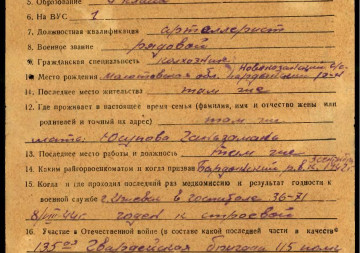 5. Образование 4 класса
6. На ВУС 1
7. Должностная квалификация артеллерист
8. Военное звание рядовой
9. Гражданская специальность колхозник
10. Место рождения Молотовская обл. Бардымский р-н
11. Последнее место жительства там же
12. Где проживает в настоящее время семья (фамилия, имя и отчество жены или
родителей и точный их адрес) там же
мать Юсупова
13. Последнее место работы и должность там же
14. Каким райвоенкоматом и когда призван Бардымский рвк 1942 г.
15. Когда и где проходил последний раз медкомиссию и результат годности к
военной службе в госпитале 36-81
8/VIII 44 г. годен к строевой
16. Участие в Отечественной войне (в составе какой последней части в качестве
135 Гвардейская бригада 115 полк